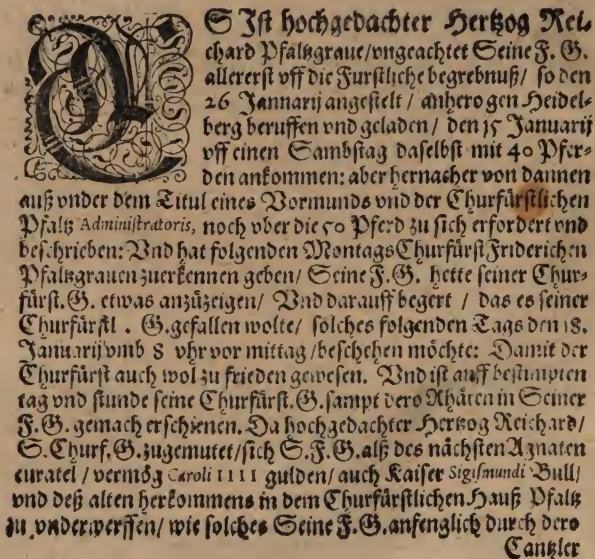 ES Ist hochgedachter Hertzog Rei-
chard Pfaltzgraue/vngeachtet Seine F. G.
allererst vff die Furstliche begrebnuß/ so den
26 Jannarij angestelt / anhero gen Heidel-
berg beruffen vnd geladen / den 15 Januarij
vff einen Sambstag daselbst mit 40 Pfer-
den ankommen: aber hernacher von dannen
auß vnder dem Titul eines Vormunds vnd der Churfürstlichen
Pfaltz Administratoris, noch vber die 50 Pferd zu sich erfordert vnd
beschrieben: Vnd hat folgenden Montags Churfürst Friderichen
Pfaltzgrauen zuerkennen geben/ Seine F. G. hette seiner Chur-
fürst. G. etwas anzüzeigen/ Vnd darauff begert / das es seiner
Churfürstl . G. gefallen wolte/ solches folgenden Tags den 18.
Januarij vmb 8 vhr vor mittag /beschehen möchte: Damit der
Churfürst auch wol zu frieden gewesen. Vnd ist auff bestimpten
tag vnd stunde seine Churfürst. G. sampt dero Rhäten in Seiner
F. G. gemach erschienen. Da hochgedachter Hertzog Reichard/
S. Churf. G. zugemutet/sich S. F. G. alß des nächsten Agnaten
curatel / vermög Caroli IIII gulden/ auch Kaiser Sigismundi Bull/
vnd deß alten herkommens in dem Churfürstlichen Hauß Pfaltz
zu vnderwerffen/ wie solches Seine F. G. anfenglich durch dero
Cantzler